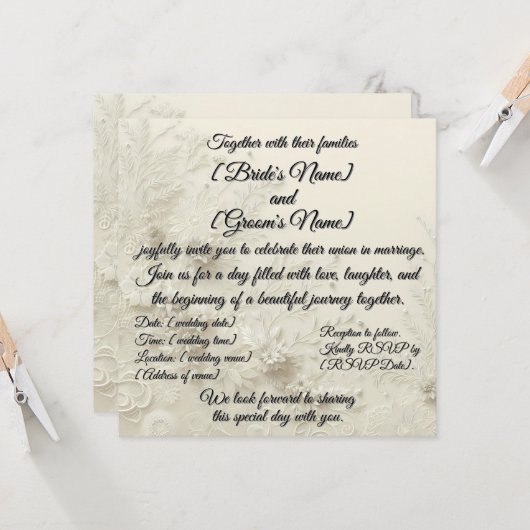 Together with their families
[Bride's Name]
and
[Groom's Name]
joyfully invite you to celebrate their union in marriage.
Join us for a day filled with love, laughter, and
the beginning of a beautiful journey together.
Date: [wedding date]
Time: [wedding time]
Location: [wedding venue]
[Address of venue]
Reception to follow.
Kindly RSVP by
[RSVP Date].
We look forward to sharing
this special day with you.